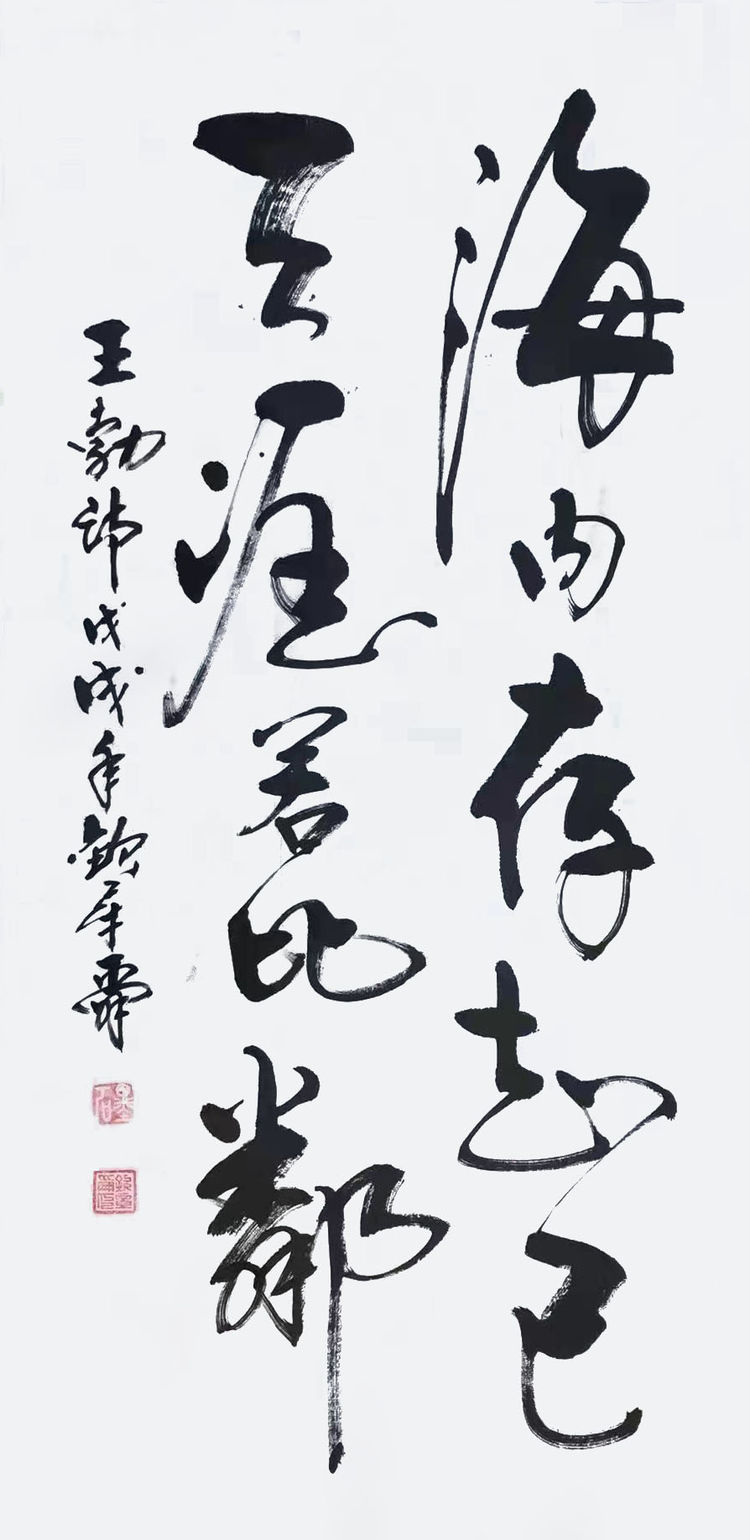 海内存知己
天涯若比鄰
王勃诗戊戌年